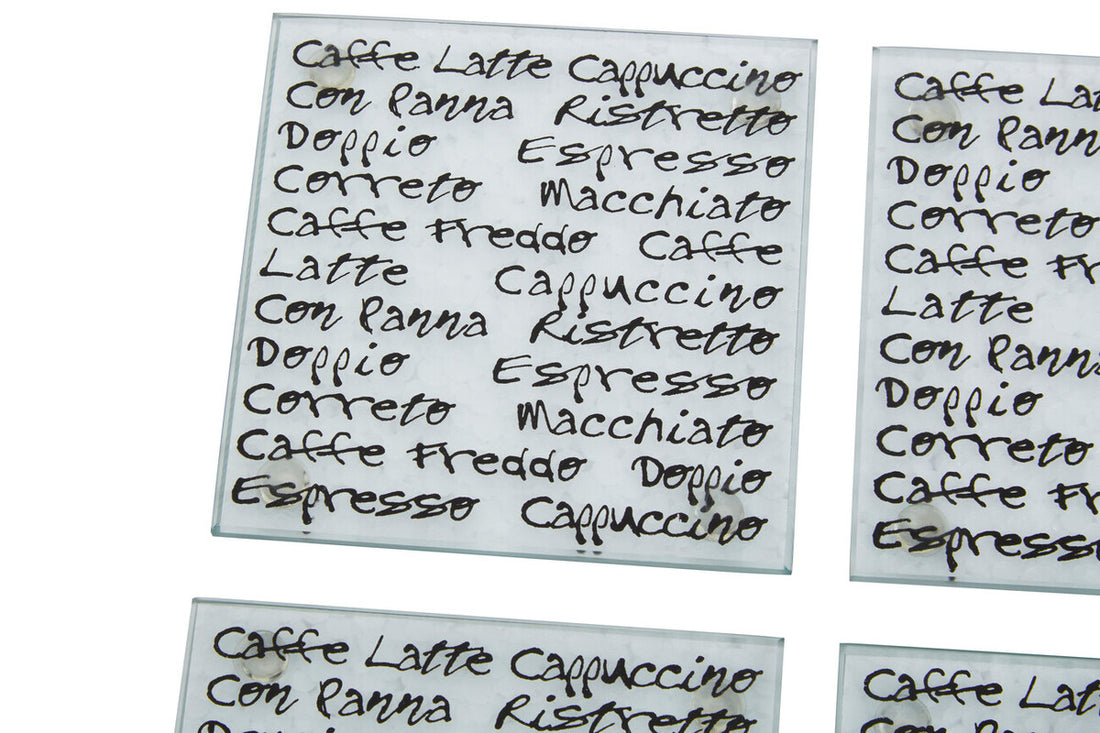 Caffe Latte Cappuccino
Con Panna Ristretto
Doppio Espresso
Correto Macchiato
Caffe Freddo Caffe
Latte Cappuccino
Con Panna Ristretto
Doppio Espresso
Correto Macchiato
Caffe Freddo Doppio
Espresso Cappuccino
Caffe Lat
Con Pann
Doppio
Correto
Caffe Fr
Latte
Con Panna
Doppio
Correto
Caffe Fr
Espresso
Caffe Latte Cappuccino
Con Panna Ristretto
Caffe Latt